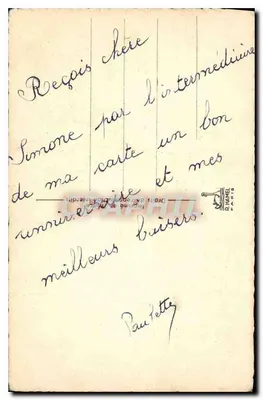 Reçois chère
Simone par l'intermédiaire
de ma carte un bon
anniversaire et mes
meilleurs baisers.
Paulette